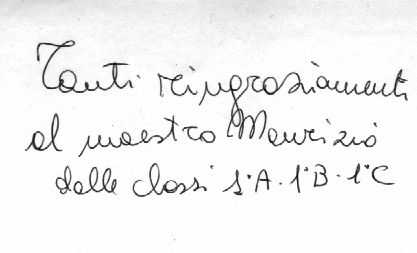 Tanti ringraziamenti
al maestro Maurizio
dalle classi 1°A. 1°B. 1°C